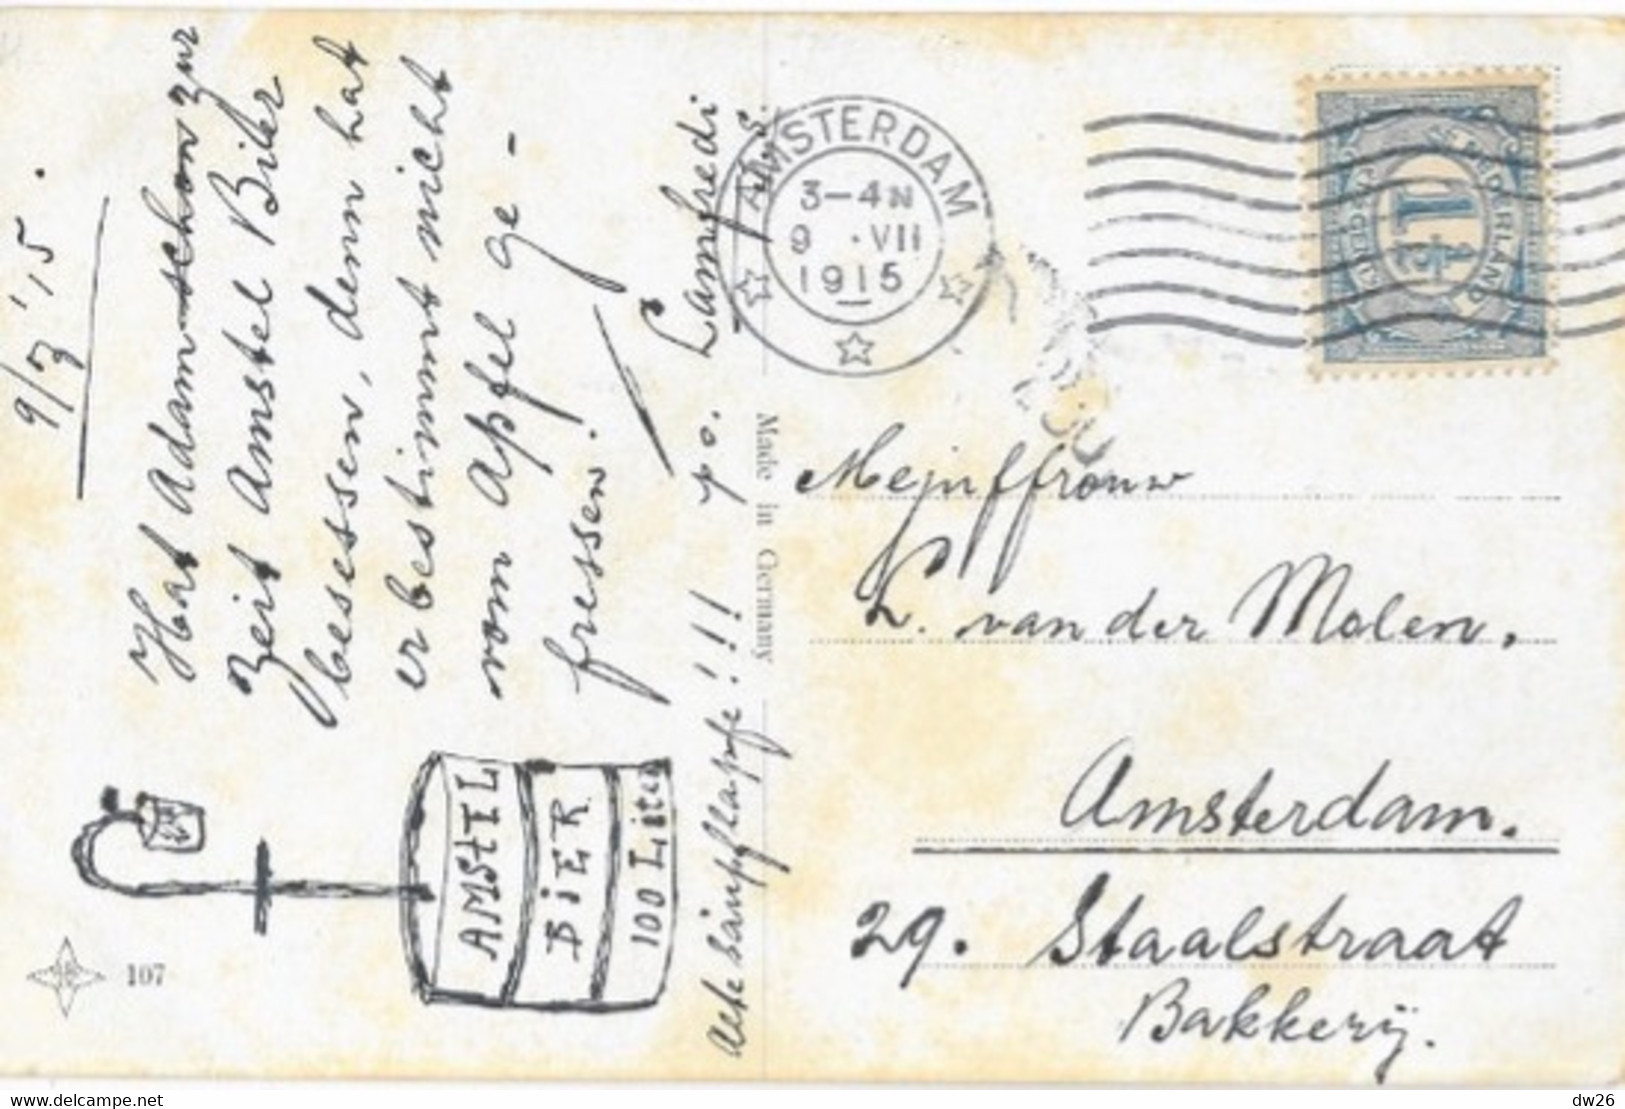 9/7 '15.
Hat Adam schon zur
Zeit Amstel Bier
besessen, denn hat
er bestimmt nicht
vom Apfel ge-
fressen!
AMStEL
BiER
100 Liter
107
Made in Germany
AMSTERDAM
3-4 N
9 .VII
1915
NEDERLAND
1½
Mejuffrouw
L. van der Molen.
Amsterdam.
29. Staalstraat
Bakkerij.
dw26
www.delcampe.net